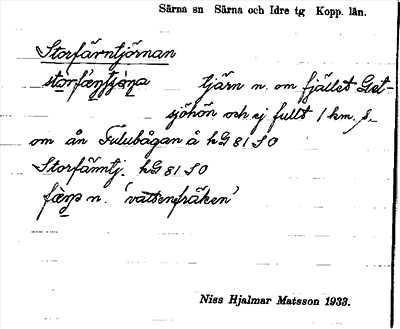 Särna sn Särna och Idre tg Kopp. län.
Storfärntjörnan
tjärn n. om fjället Get-
sjöhön och ej fullt 1 km. s.
om ån Fulubågan å hG 81 SO
Storfärntj. hG 81 SO
n. 'vattenfräken'
Niss Hjalmar Matsson 1933.